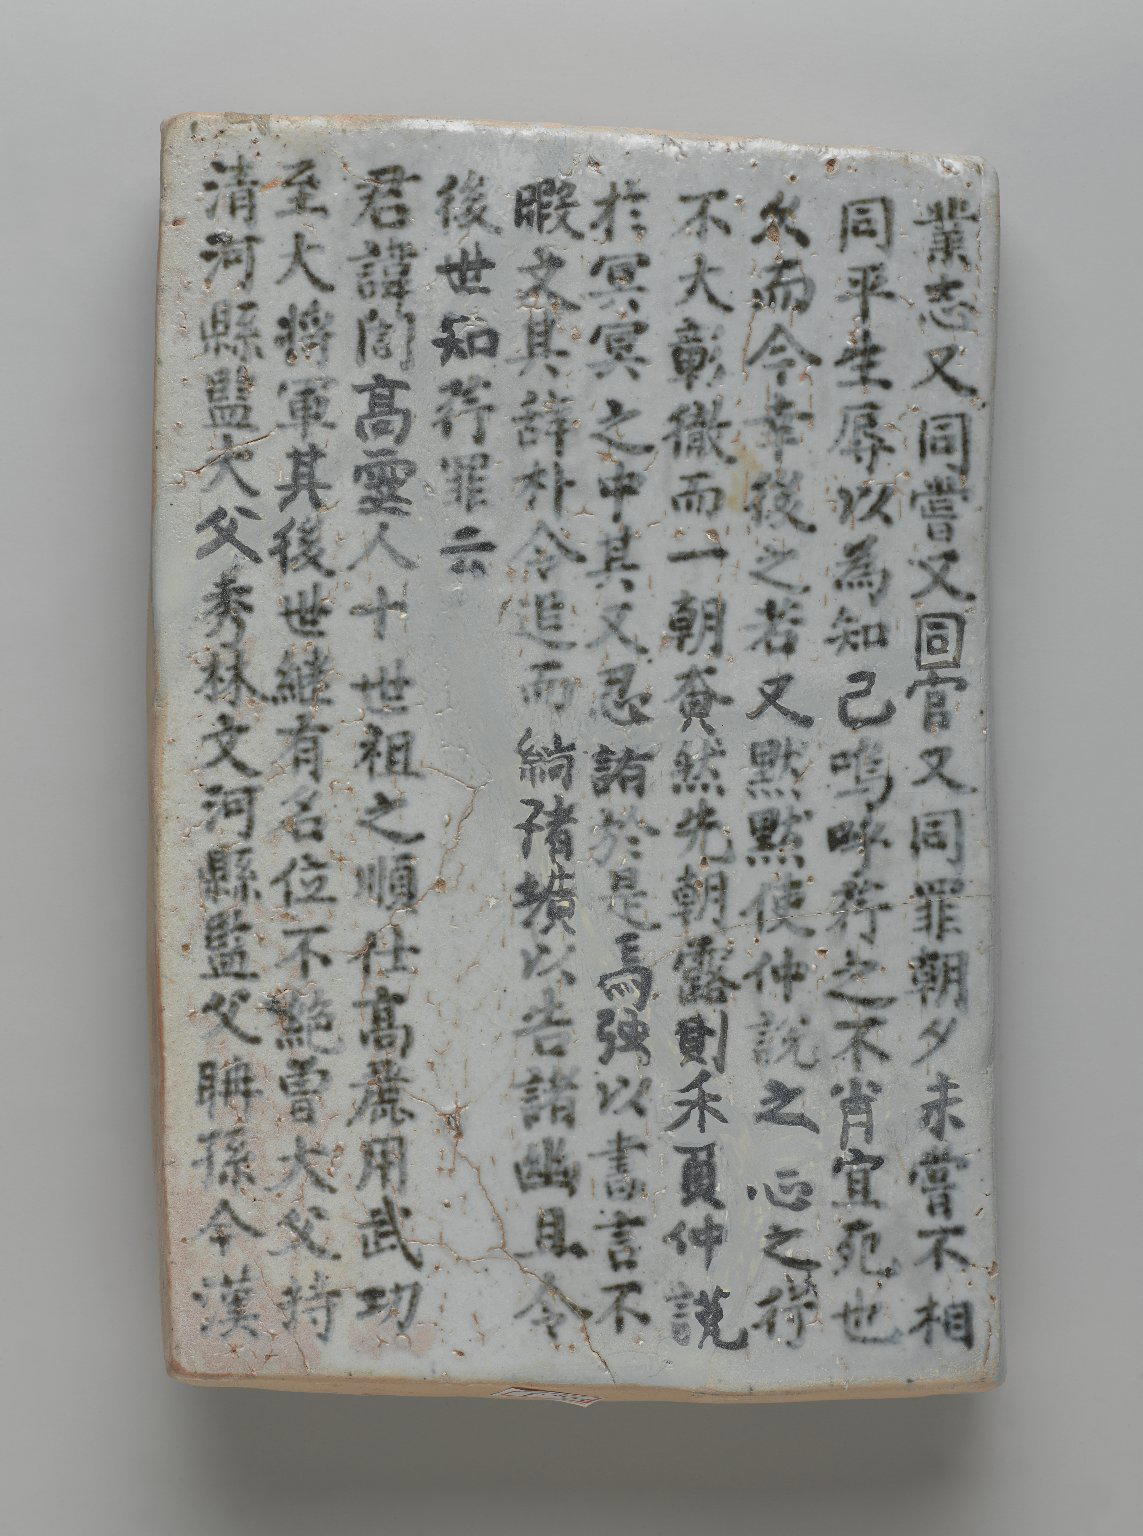 業志又同嘗又同官又同罪朝夕未嘗不相
同平生辱以為知己嗚呼荇之不肖宜死也
久而今幸後之若又默默使仲說之心之行
不大彰徹而一朝奄然先朝露則禾頁仲說
於冥冥之中其又忍諸於是焉強以書言不
暇文其辞朴令追而納諸壙以告諸幽且令
後世知荇罪云
君諱誾高靈人十世祖之順仕高麗用武功
至大將軍其後世継有名位不絶曽大父持
清河縣監大父秀林文河縣監父聃孫今漢